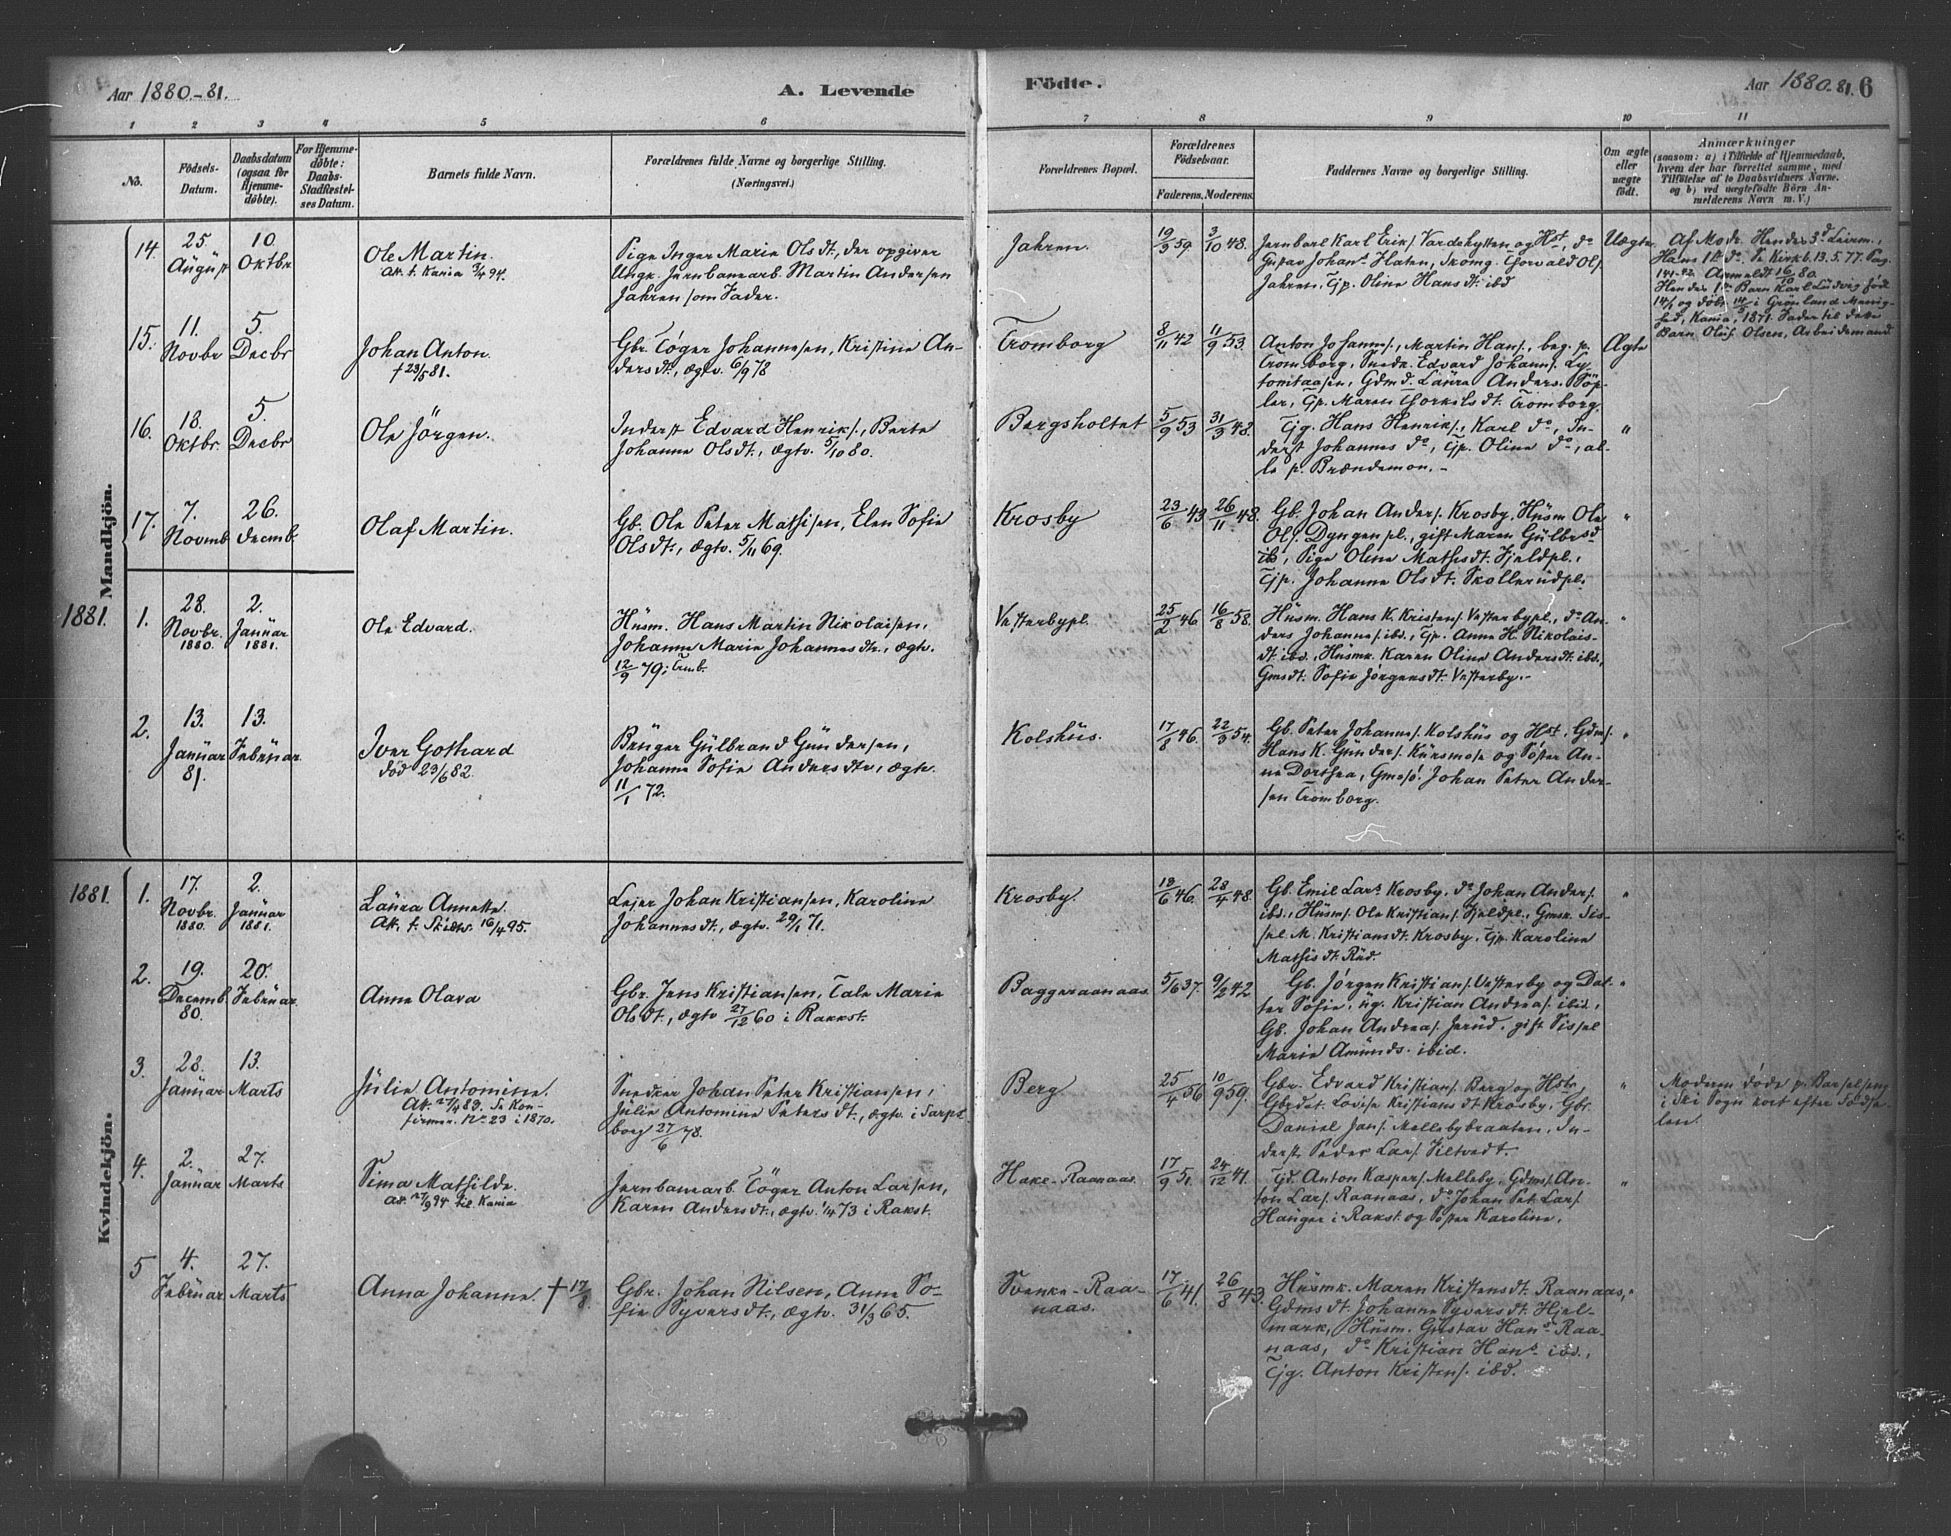 Aar 1880.-81.
A. Levende
Födte.
Aar 1880.81. 6
1 2 3 4 5 6 7 8 9 10 11
No.
Födsels-
Datum.
Daabsdatum
(ogsaa for
Hjemme-
döbte).
For Hjemme-
döbte:
Daabs-
Stadfæstel-
ses Datum.
Barnets fulde Navn.
Forældrenes fulde Navne og borgerlige Stilling.
(Næringsvei.)
Forældrenes Bopæl.
Forældrenes
Födselsaar.
Faderens. Moderens.
Faddernes Navne og borgerlige Stilling.
Om ægte
eller
uægte
födt.
Anmærkninger
(saasom: a) i Tilfælde af Hjemmedaab,
hvem der har forrettet samme, med
Tilföielse af to Daabsvidners Navne.
og b) ved uægtefödte Börn An-
melderens Navn m. V.)
Mandkjön.
14.
25.
August
10.
Oktbr.
Ole Martin.
Att. t. Kania 2/4 94.
Pige Inger Marie Olsdt., der opgiver
Ungk. Jernbanearb. Martin Andersen
Jahren som Fader.
Jahren.
19/9 59
3/10 48.
Jernbarb Karl Eriks. Vardehytten og Hst, do
Gustav Johans. Haten, Skomg. Thorvald Ols.
Jahren, Tjp. Oline Hansdt. ibd
Uægte
Af Modr. Hendes 3d Leirm.,
Hans 1st do. Se Kirkb. 13. 5. 77. Pag.
141-42. Anmeldt 16/10 80.
Hendes 1st Barn Karl Ludvig född
14/1 og döbt 14/5 i Grönland Menig-
hed, Kania, 1871. Fader til dette
Barn Oluf Olsen, Arbeidsmand
15.
11.
Novbr
5.
Decbr
Johan Anton.
† 23/5 81.
Gbr. Töger Johannesen, Kristine An-
dersdt., ægtv. 6/9 78
Tromborg
8/11 42
11/9 53.
Anton Johanns., Martin Hans., beg. p.
Tromborg, Snedk. Edvard Johanns. Ly-
tomtaasen, Gdmd. Laura Anders. Töp-
ler, Tjp. Maren Thorkilsdt. Tromborg.
Ægte
16.
18.
Oktbr.
5.
Decbr
Ole Jörgen.
Inderst Edvard Henriks., Berte
Johanne Olsdt., ægtv. 5/10 80.
Bergsholtet
5/9 53
31/3 48.
Tjg. Hans Henriks., Karl do, In-
derst Johannes do, Tjp. Oline do, al-
le p. Brændemon. -
"
17.
7.
Novmb.
26.
Decmb.
Olaf Martin.
Gb. Ole Peter Mathisen, Elen Sofie
Olsdt., ægtv. 5/11 69.
Krosby
23/6 43
26/11 48.
Gb. Johan Anders. Krosby, Husm Ole
Ols. Dyngenpl., gift Maren Gulbrsd
ib, Pige Oline Mathisdt. Fjeldpl.,
Tjp. Johanne Olsdt. Skollerudpl.
"
1881.
1.
28.
Novbr.
1880.
2.
Januar
1881.
Ole Edvard.
Husm. Hans Martin Nikolaisen,
Johanne Marie Johannesdtr., ægtv.
12/9 79 i Tromb.
Vesterbypl.
25/2 46
16/8 58.
Husm. Hans K. Kristens. Vesterbypl., do An-
ders Johannes. ibd., Tjp. Anne H. Nikolais-
dt. ibd., Husmk. Karen Oline Andersdt. ibd.,
Gmsdt. Sofie Jörgensdt. Vesterby. -
"
2.
13.
Januar
81.
13.
Februar
Iver Gothard
död 23/6 82.
Bruger Gulbrand Gundersen,
Johanne Sofie Andersdtr., ægtv.
11/1 72.
Kolshus.
17/8 46.
22/3 54.
Gb. Peter Johanns. Kolshus og Hst, Gdms.
Hans K. Gunders. Kursmose og Söster An-
ne Dorthea, Gmsö. Johan Peter Ander-
sen Tromborg.
"
Kvindekjön.
1881.
1.
17.
Novbr.
1880.
2.
Januar
1881.
Laura Annette.
Att. t. Skibtv. 16/4 95.
Lejer Johan Kristiansen, Karoline
Johannesdt., ægtv. 29/1 71.
Krosby.
18/6 46.
28/4 48.
Gb. Emil Lars. Krosby, do Johan Anders.
ibd., Husms. Ole Kristians. Fjeldpl., Gmsk. Sis-
sel M. Kristiansdt. Krosby, Tjp. Karoline
Mathisdt. Rud.
"
2.
19.
Decemb.
80.
20.
Februar.
Anne Olava
Gbr. Jens Kristiansen, Tale Marie
Olsdt., ægtv 27/12 60 i Rakkst.
Baggeraanaas.
5/6 37.
9/2 42
Gb. Jörgen Kristians. Vesterby og Dat-
ter Sofie, ug. Kristian Andreas. ibid.,
Gb. Johan Andreas. Jerud, gift Sissel
Marie Amunds. ibid.
"
3.
28.
Januar
13.
Marts
Julie Antomine.
Att. 27/4 89. Se Kon-
firmer. No 23 i 1870.
Snedker Johan Peter Kristiansen,
Julie Antomine Petersdt., ægtv. i Sarps-
borg 27/6 78.
Berg
25/4 56
10/9 59.
Gbr. Edvard Kristians. Berg og Hstr,
Gbrdat. Lovise Kristiansdt Krosby, Gbr.
Daniel Jans. Mellebybraaten, In-
derst Peder Lars. Tiltvedt.
"
Moderen döde p. Barselseng
i Ski Sogn kort efter Födse-
len.
4.
2.
Januar
27.
Marts
Sima Mathilde.
Att. 27/9 94 til Kania
Jernbanearb. Töger Anton Larsen,
Karen Andersdt., ægtv. 1/4 73 i Rakst.
Hake-Raanaas.
17/9 51.
24/12 41.
Gd. Anton Kaspers. Melleby, Gdms. An-
ton Lars. Raanaas, do Johan Pet. Lars.
Hauger i Rakst. og Söster Karoline.
"
5
4.
Februar
27.
Marts
Anna Johanne. † 17/8.
Gbr. Johan Nilsen, Anne So-
fie Syversdt., ægtv. 31/3 65.
Svenke-Raa-
naas.
17/6 41.
26/8 43.
Husmk. Maren Kristensdt. Raanaas,
Gdmsdt. Johanne Syversdt. Hjel-
mark, Husm. Gustav Hans. Raa-
naas, do Kristian Hans. ibd.,
Tjg. Anton Kristens. ibd.
"